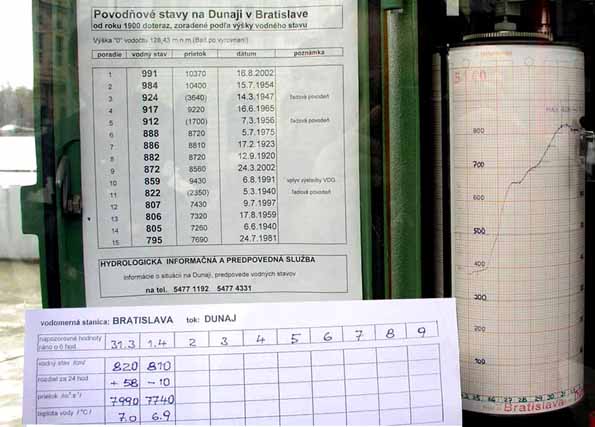 Povodňové stavy na Dunaji v Bratislave
od roku 1900 doteraz, zoradené podľa výšky vodného stavu
Výška "0" vodočtu 128,43 m n.m.(Balt po vyrovnaní)
poradie vodný stav prietok dátum poznámka
1 991 10370 16.8.2002
2 984 10400 15.7.1954
3 924 (3640) 14.3.1947 ľadová povodeň
4 917 9220 16.6.1965
5 912 (1700) 7.3.1956 ľadová povodeň
6 888 8720 5.7.1975
7 886 8810 17.2.1923
8 882 8720 12.9.1920
9 872 8560 24.3.2002
10 859 9430 6.8.1991 vplyv výstavby VDG
11 822 (2350) 5.3.1940 ľadová povodeň
12 807 7430 9.7.1997
13 806 7320 17.8.1959
14 805 7260 6.6.1940
15 795 7690 24.7.1981
HYDROLOGICKÁ INFORMAČNÁ A PREDPOVEDNÁ SLUŽBA
informácie o situácii na Dunaji, predpovede vodných stavov
na tel. 5477 1192 5477 4331
vodomerná stanica: BRATISLAVA tok: DUNAJ
napozorované hodnoty
ráno o 6 hod. 31.3 1.4 2 3 4 5 6 7 8 9
vodný stav /cm/ 820 810
rozdiel za 24 hod + 58 - 10
prietok /m³.s⁻¹/ 7990 7740
teplota vody /°C/ 7.0 6.9
800
700
600
500
400
300
200
100
25 26 27 28 29 30 31
Bratislava